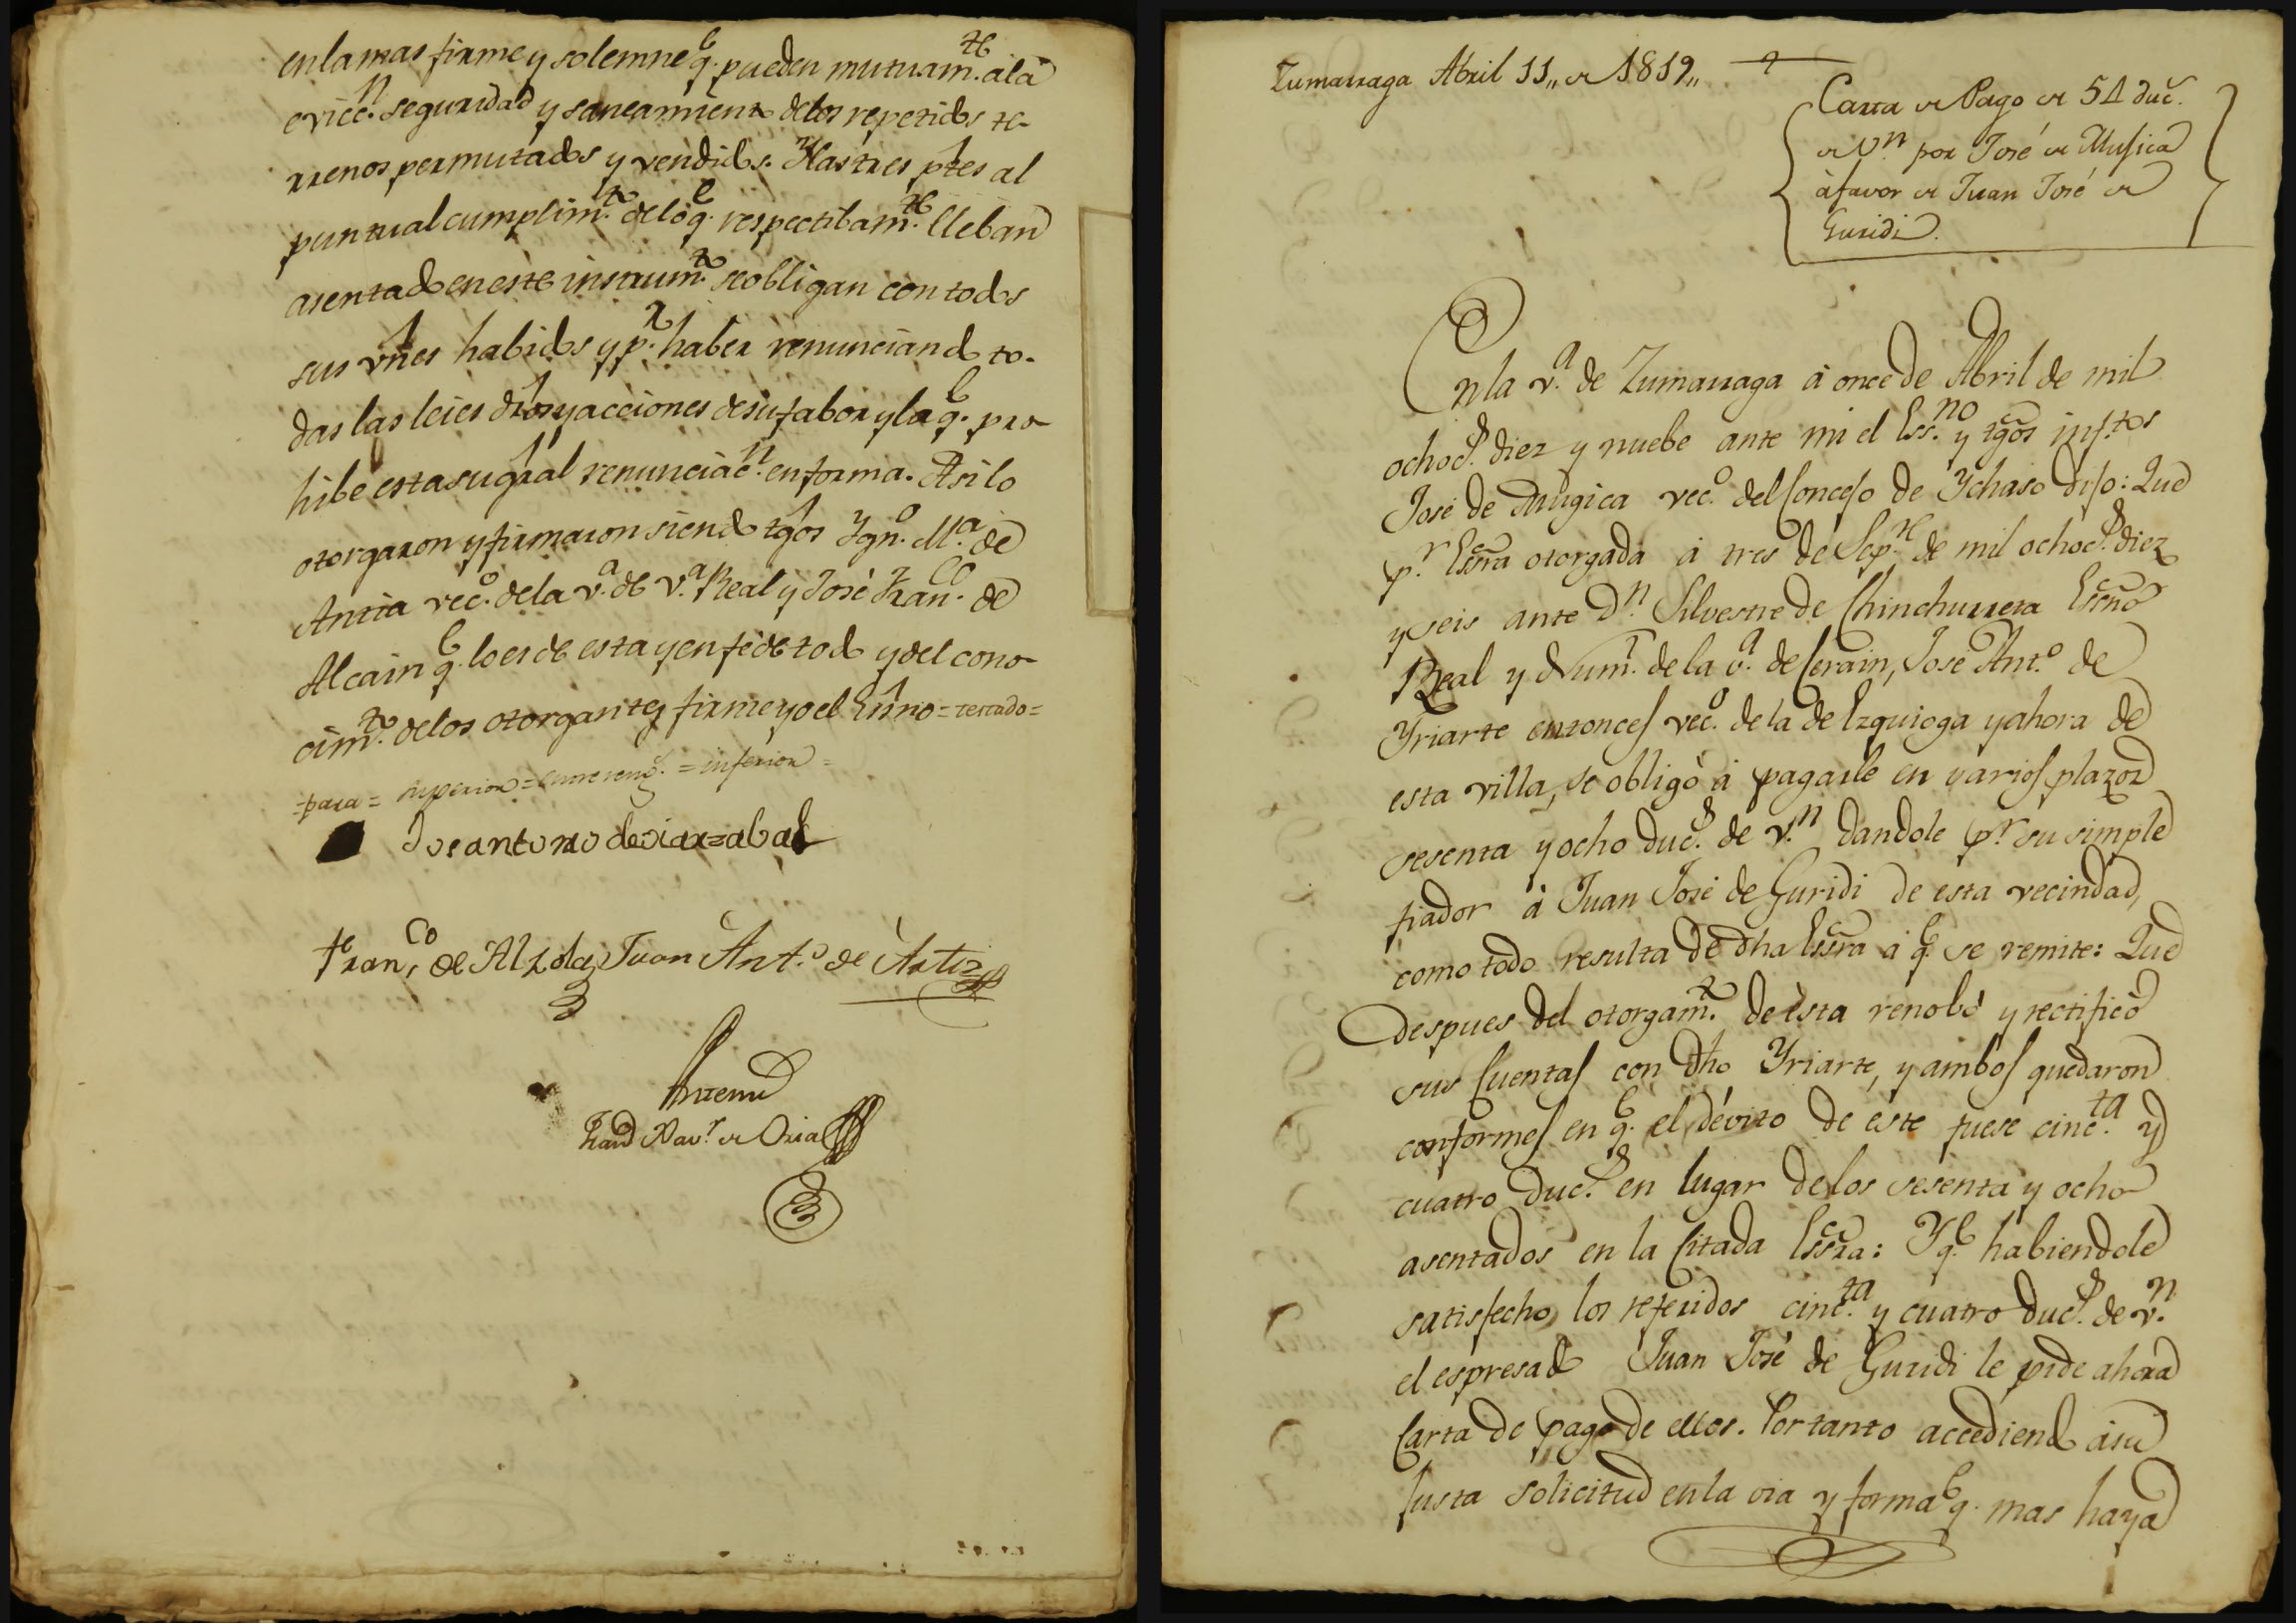 en la mas firme y solemne q.e pueden mutuam.te a la
evicc.n seguridad y saneamiento de los repetidos te-
rrenos permutados y vendidos. Y las tres ptes al
puntual cumplim.to de lo q.e respectibam.te lleban
asentado en este instrum.to se obligan con todos
sus vnes habidos y p.r haber renunciando to-
das las leies dros y acciones de su fabor y la q.e pro
hibe esta su gral renunciac.n en forma. Asi lo
otorgaron y firmaron siendo tgos Ygn.o M.a de
Antia vec.o de la v.a de V.a Real y José Fran.co de
Alcain q.e lo es de esta y en fé de todo y del cono-
cim.to de los otorgantes firme yo el Essno = testado =
= para = superior = entre reng.s = inferior =
Jose antonio de
Fran.co de Alzola Juan Ant.o de Artiz
Antemi
Fran.co Xav.r de Oria
Zumarraga Abril 11,, de 1819,,
Carta de Pago de 54 duc.s
de V.n por José de Musica
à favor de Juan José de
Guridi.
En la v.a de Zumarraga à once de Abril de mil
ochoc.s diez y nuebe ante mi el Ess.no y tgos inf.tos
José de Mugica vec.o del Concejo de Ychaso dijo: Que
p.r Essra otorgada à tres de Sep.re de mil ochoc.s diez
y seis ante D.n Silvestre de Chinchurreta Essno
Real y Num.l de la v.a de Cerain, José Ant.o de
Yriarte entonces vec.o de la de Ezquioga y ahora de
esta villa, se obligó à pagarle en varios plazos
sesenta y ocho duc.s de v.n dandole p.r su simple
fiador à Juan José de Guridi de esta vecindad,
como todo resulta de dha Essra à q.e se remite: Que
despues del otorgam.to de ésta renobó y rectificó
sus Cuentas con dho Yriarte, y ambos quedaron
conformes en q.e el dévito de éste fuese cinc.ta y
cuatro duc.s en lugar de los sesenta y ocho
asentados en la Citada Essra: Y q.e habiendole
satisfecho los referidos cinc.ta y cuatro duc.s de v.n
el espresado Juan José de Guridi le pide ahora
Carta de pago de ellos. Por tanto accediendo à su
Justa solicitud en la via y forma q.e mas haya